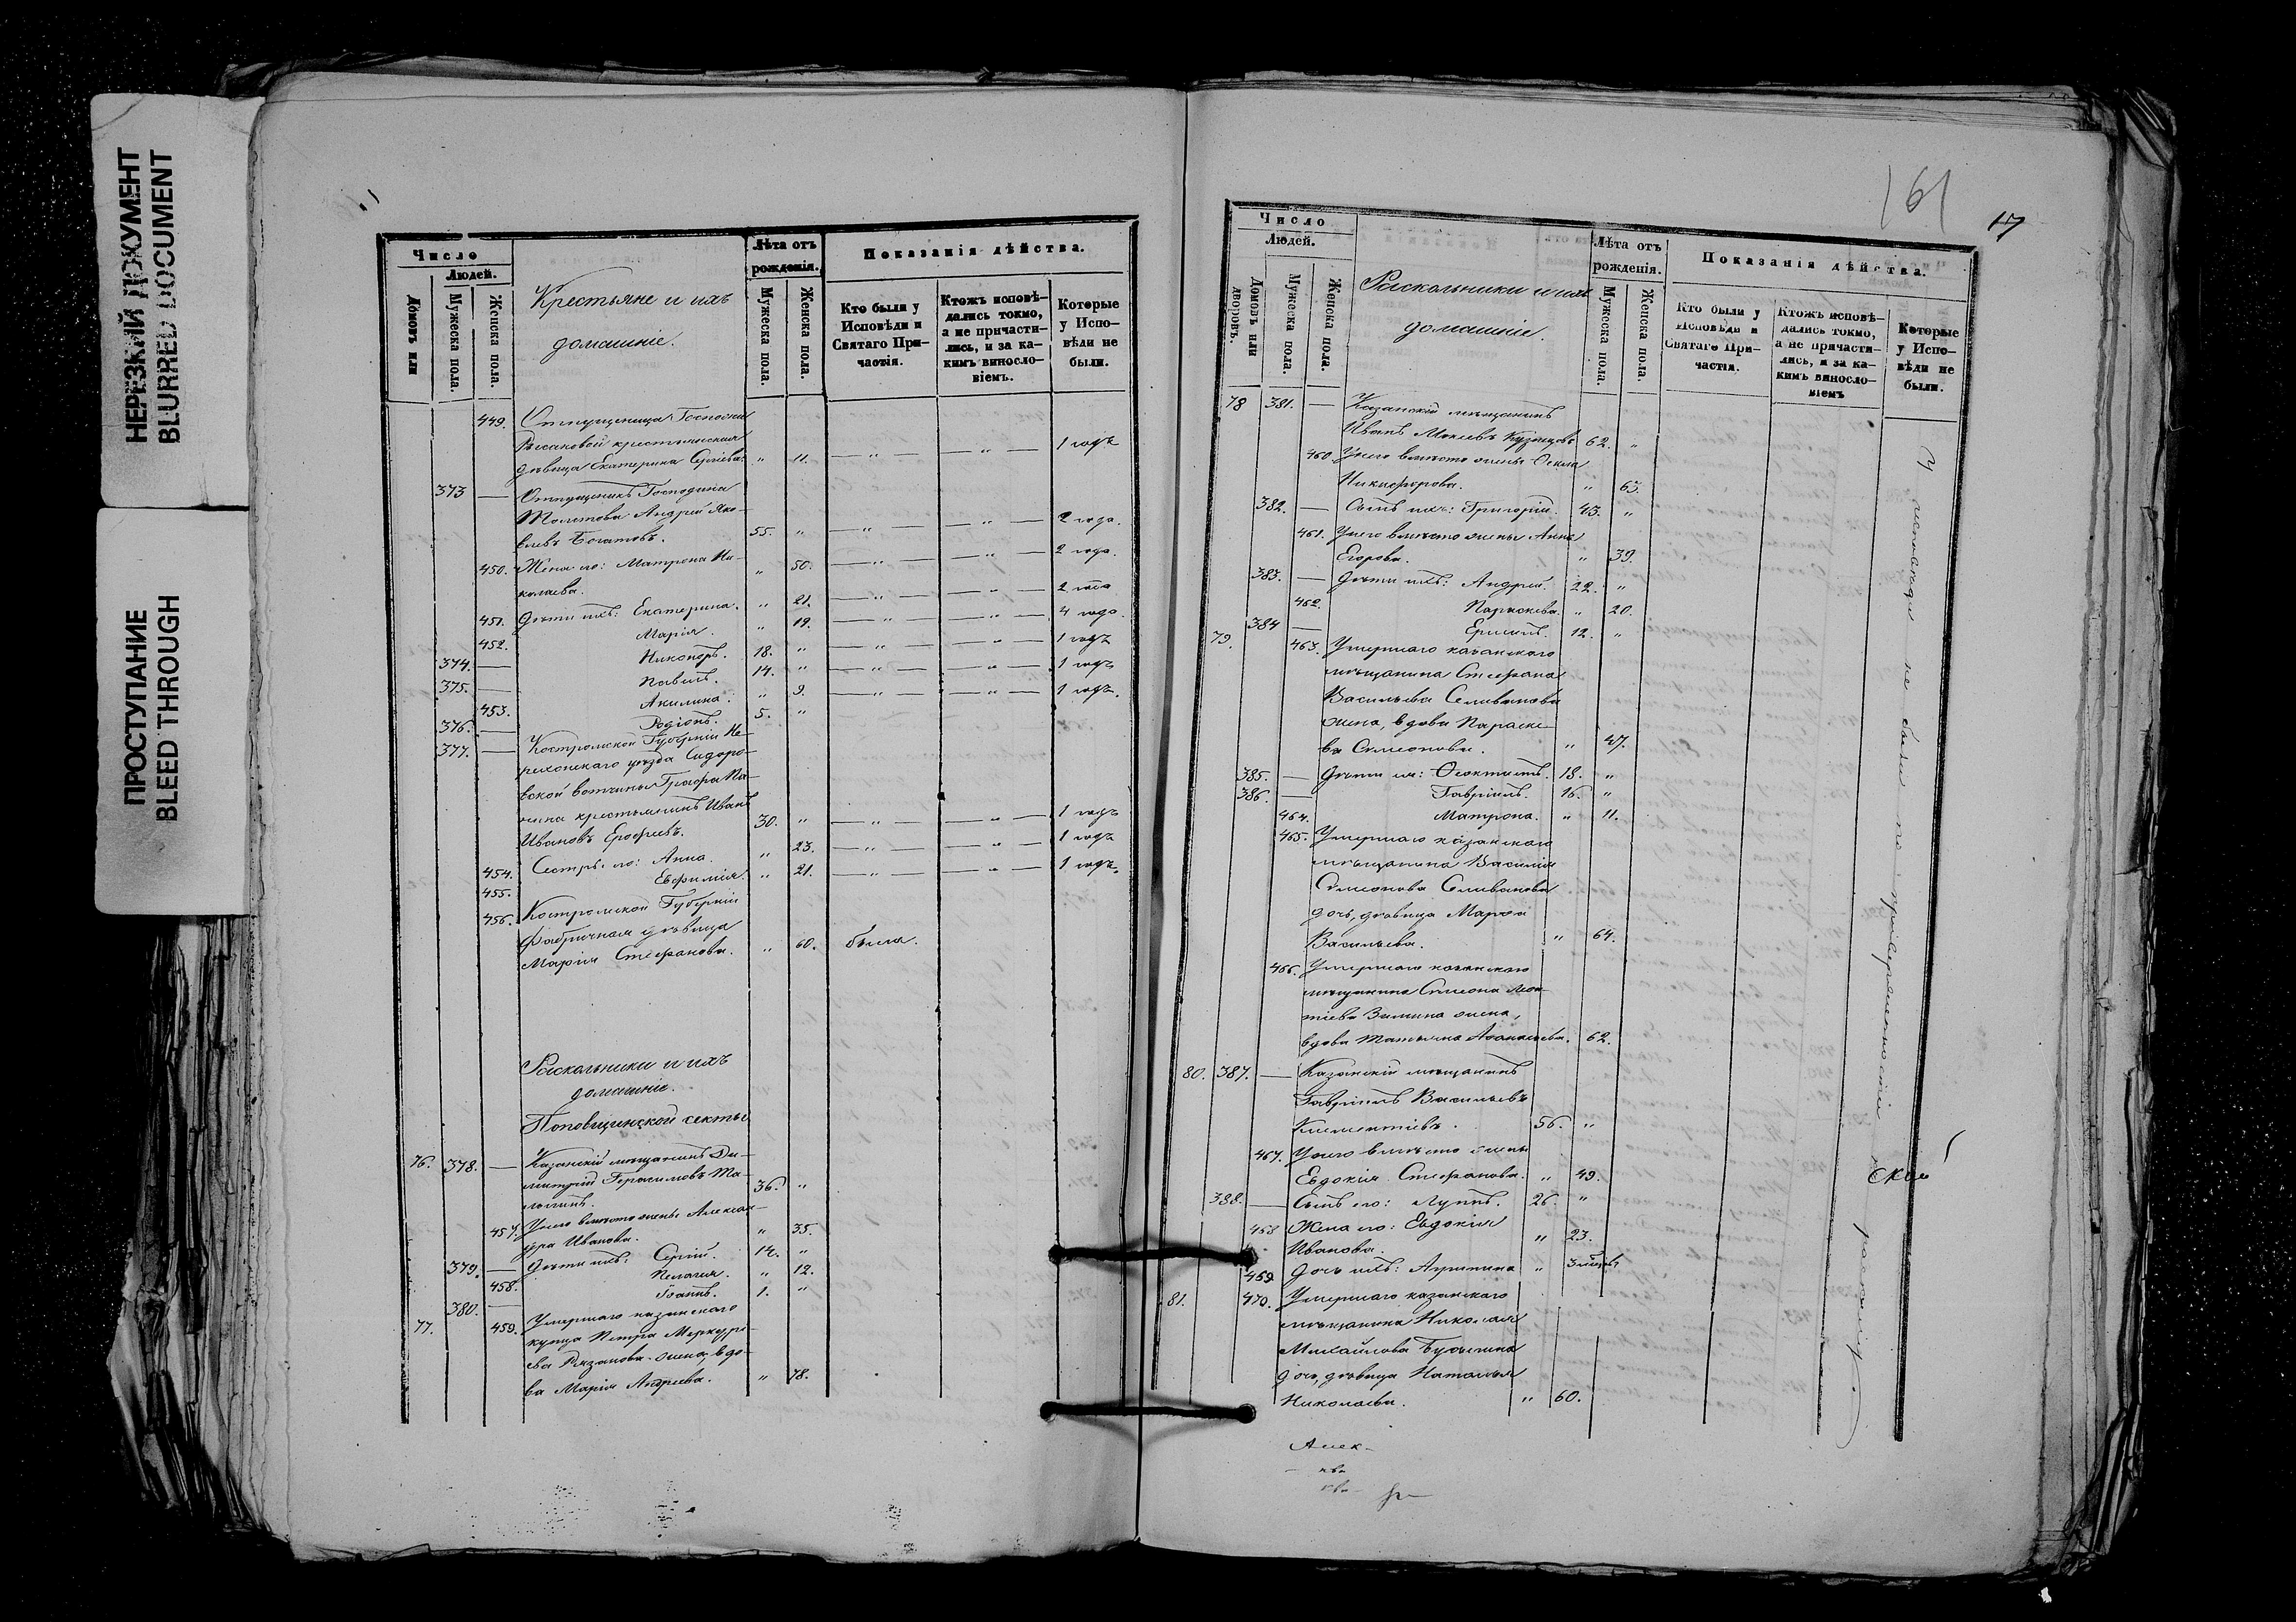 НЕРЕЗКИЙ ДОКУМЕНТ
BLURRED DOCUMENT
ПРОСТУПАНИЕ
BLEED THROUGH
Число
Людей.
Домовъ или
Мужеска пола.
Женска пола.
Крестьяне и ихъ
домашніе.
Лѣта отъ
рожденія.
Мужеска пола.
Женска пола.
Показанія дѣйства.
Кто были у
Исповѣди и
Святаго При-
частія.
Ктожъ исповѣ-
дались токмо,
а не причасти-
лись, и за ка-
кимъ винослo-
віемъ.
Которые
у Испо-
вѣди не
были.
449. Отпущеница Госпожи
крестьянская
дѣвица Екатерина Сергіева. " 11. — " — — " — 1 годъ
373 — Отпущеникъ Господина
Андрей Яко-
влевъ Богатовъ. 55. " — " — — " — 2 года.
450. Жена его: Матрона Ни-
колаева. " 50. — " — — " — 2 года.
451. Дѣти ихъ: Екатерина. " 21. — " — — " — 2 года
452. Марія. " 19. — " — — " — 4 года.
374. — Никоноръ. 18. " — " — — " — 1 годъ
375. — Павелъ. 14. " — " — — " — 1 годъ
453. Акилина. " 9. — " — — " — 1 годъ.
376. — Родіонъ. 5. "
377. — Костромской Губерніи Не-
рехонскаго уѣзда Сидоро-
вской вотчины Графа Па-
нина крестьянинъ Иванъ
Ивановъ Ерофеевъ. 30. " — " — — " — 1 годъ
454. Сестры его: Анна. " 23. — " — — " — 1 годъ
455. Евфимія. " 21. — " — — " — 1 годъ.
456. Костромской Губерніи
фабричная дѣвица
Марія Стефанова. " 60. была.
Раскольники и ихъ
домашніе.
Поповщинской секты
76. 378. — Казанскій мѣщанинъ Ди-
митрій Герасимовъ
36. "
457. У него вмѣсто жены Александ-
ра Иванова. " 35.
379. — Дѣти ихъ: Сергій. 14. "
458. Пелагея. " 12.
380. — Іоаннъ. 1. "
77. 459. Умершаго казанскаго
купца Петра Меркурі-
ева Рязанова жена, вдо-
ва Марія Андреева. " 78.
161 17
Число
Людей.
Домовъ или
дворовъ.
Мужеска пола.
Женска пола.
Раскольники и ихъ
домашніе.
Лѣта отъ
рожденія.
Мужеска пола.
Женска пола.
Показанія дѣйства.
Кто были у
Исповѣди и
Святаго При-
частія.
Ктожъ исповѣ-
дались токмо,
а не причасти-
лись, и за ка-
кимъ винослo-
віемъ
Которые
у Испо-
вѣди не
были.
78 381. — Казанскій мѣщанинъ
Иванъ Кузнецовъ 62. "
460 У него вмѣсто жены
Никифорова. " 63.
382. — Сынъ ихъ: Григорій. 43. "
461. У него вмѣсто жены Анна
Егорова. " 39.
383. — Дѣти ихъ: Андрей. 22. "
462. Параскева. " 20.
384 — 12. "
79. 463. Умершаго казанскаго
мѣщанина Стефана
Васильева Селиванова
жена, вдова Параске-
ва Симеонова. " 47.
385. — Дѣти ея: Феоктистъ. 18. "
386. — Гавріилъ. 16. "
464. Матрона. " 11.
465. Умершаго казанскаго
мѣщанина Василія
Симеонова Селиванова
дочь, дѣвица Марѳа
Васильева. " 64.
466. Умершаго казанскаго
мѣщанина Симеона Леон-
тіева Зимина жена,
вдова Татьяна Аѳанасьева. 62.
80. 387. — Казанскій мѣщанинъ
Гавріилъ Васильевъ
Климентіевъ. 56. "
467. У него вмѣсто жены
Евдокія Стефанова. " 49.
388. — Сынъ его: Луппъ. 26. "
468 Жена его: Евдокія
Иванова. " 23.
469 Дочь ихъ: Агрипина "
81. 470. Умершаго казанскаго
мѣщанина Николая
Михайлова
дочь, дѣвица Наталья
Николаева. " 60.
У исповѣди не были по приверженности къ расколу.